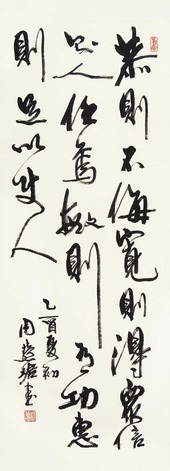 恭則不侮寬則得眾信
則人任焉敏則有功惠
則足以使人
乙酉夏初
周慧珺書